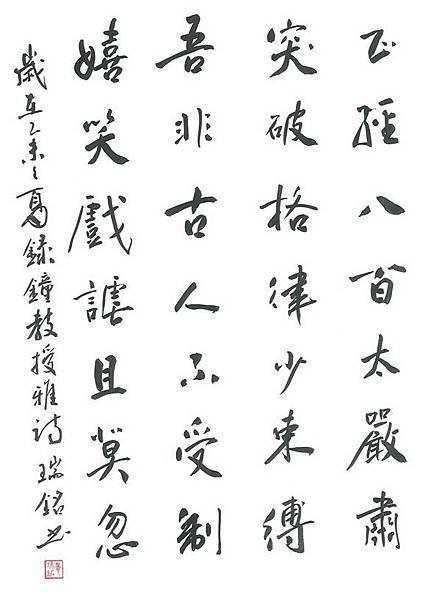 正經八百太嚴肅
突破格律少束縛
吾非古人不受制
嬉笑戲謔且莫忽
歲在乙未之夏錄鐘教授雅詩 瑞銘書